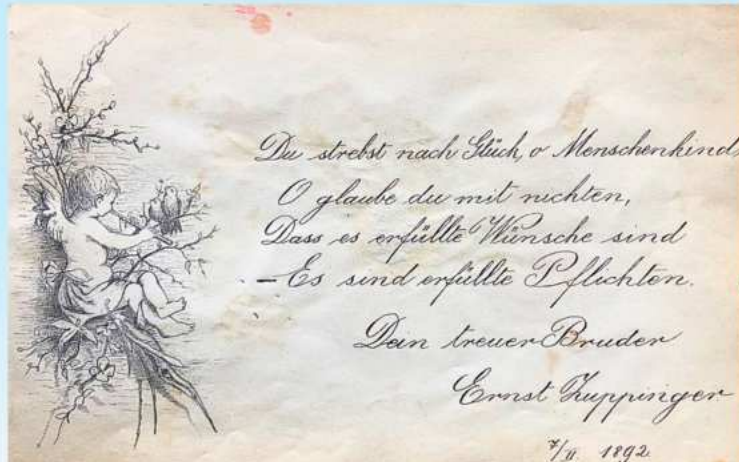 Du strebst nach Glück, o Menschenkind,
O glaube du mit nichten,
Dass es erfüllte Wünsche sind
– Es sind erfüllte Pflichten.
Dein treuer Bruder
Ernst Zuppinger
7/II 1892